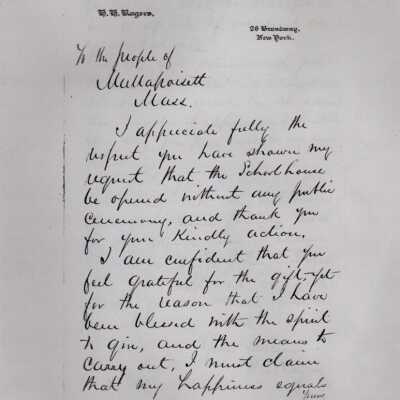 H. H. Rogers,
26 Broadway,
New York.
To the people of
Mattapoisett
Mass.
I appreciate fully the
respect you have shown my
request that the Schoolhouse
be opened without any public
ceremony, and thank you
for your kindly action.
I am confident that you
feel grateful for the gift, yet
for the reason that I have
been blessed with the spirit
to give, and the means to
carry out, I must claim
that my happiness equals
yours